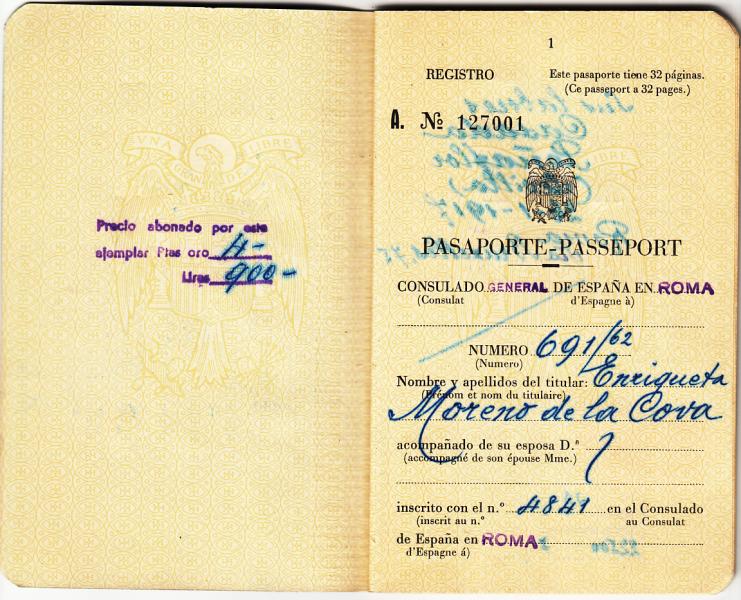 Precio abonado por este
ejemplar Ptas oro 4-
Liras 900-
1
REGISTRO
Este pasaporte tiene 32 páginas.
(Ce passeport a 32 pages.)
A. Nº 127001
PASAPORTE-PASSEPORT
CONSULADO GENERAL DE ESPAÑA EN ROMA
(Consulat d'Espagne à)
NUMERO 691/62
(Numero)
Nombre y apellidos del titular: Enriqueta
(Prénom et nom du titulaire)
Moreno de la Cova
acompañado de su esposa D.ª
(accompagné de son épouse Mme.)
inscrito con el n.º 4841 en el Consulado
(inscrit au n.º au Consulat
de España en ROMA
d'Espagne á)